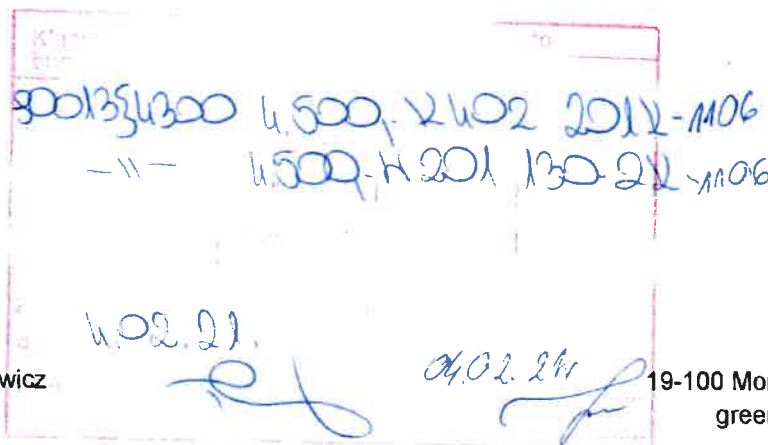 90013§4300 4.500,- K402 201K-1106
-11- 4.500,- H201 130-2K-1106
4.02.21.
wicz 04.02.21r 19-100 Mor
green